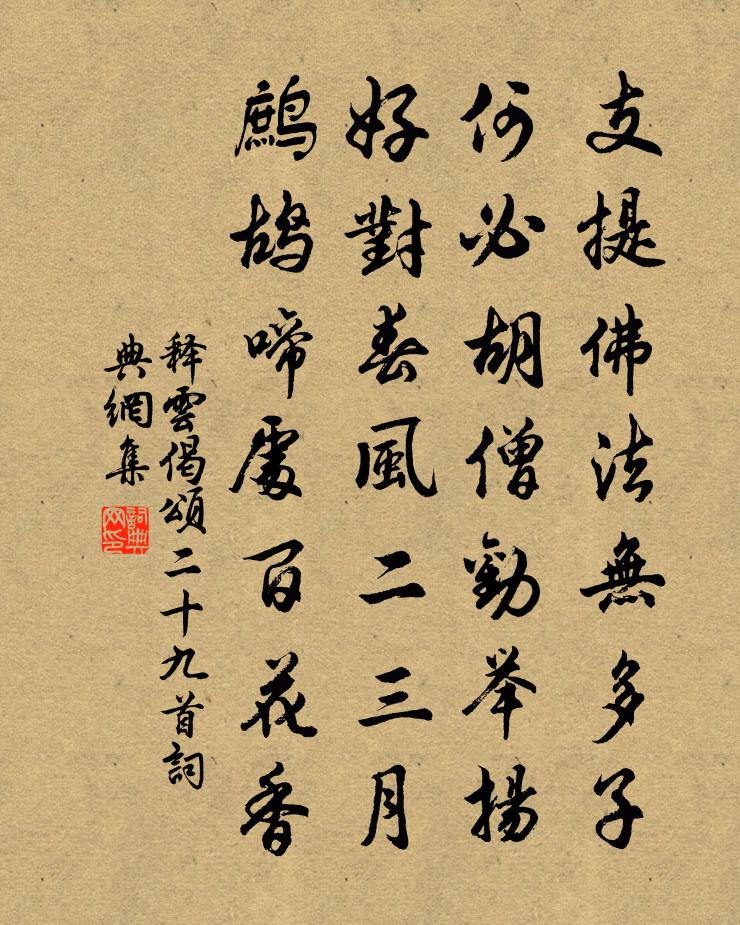 支提佛法無多子
何必胡僧勸举揚
好對春風二三月
鷓鴣啼處百花香
释雲偈頌二十九首詞
典網集
詞典
网印